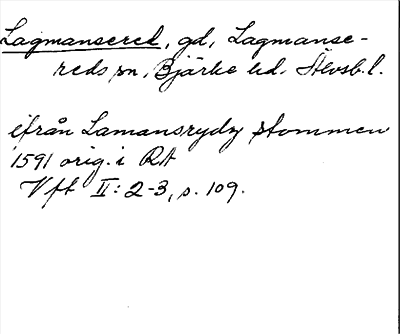 Lagmansered, gd, Lagmanse-
reds sn, Bjärke hd. Älvsb. l.
ifrån Lamansrydz stommen
1591 orig. i RA
Vft II: 2-3, s. 109.